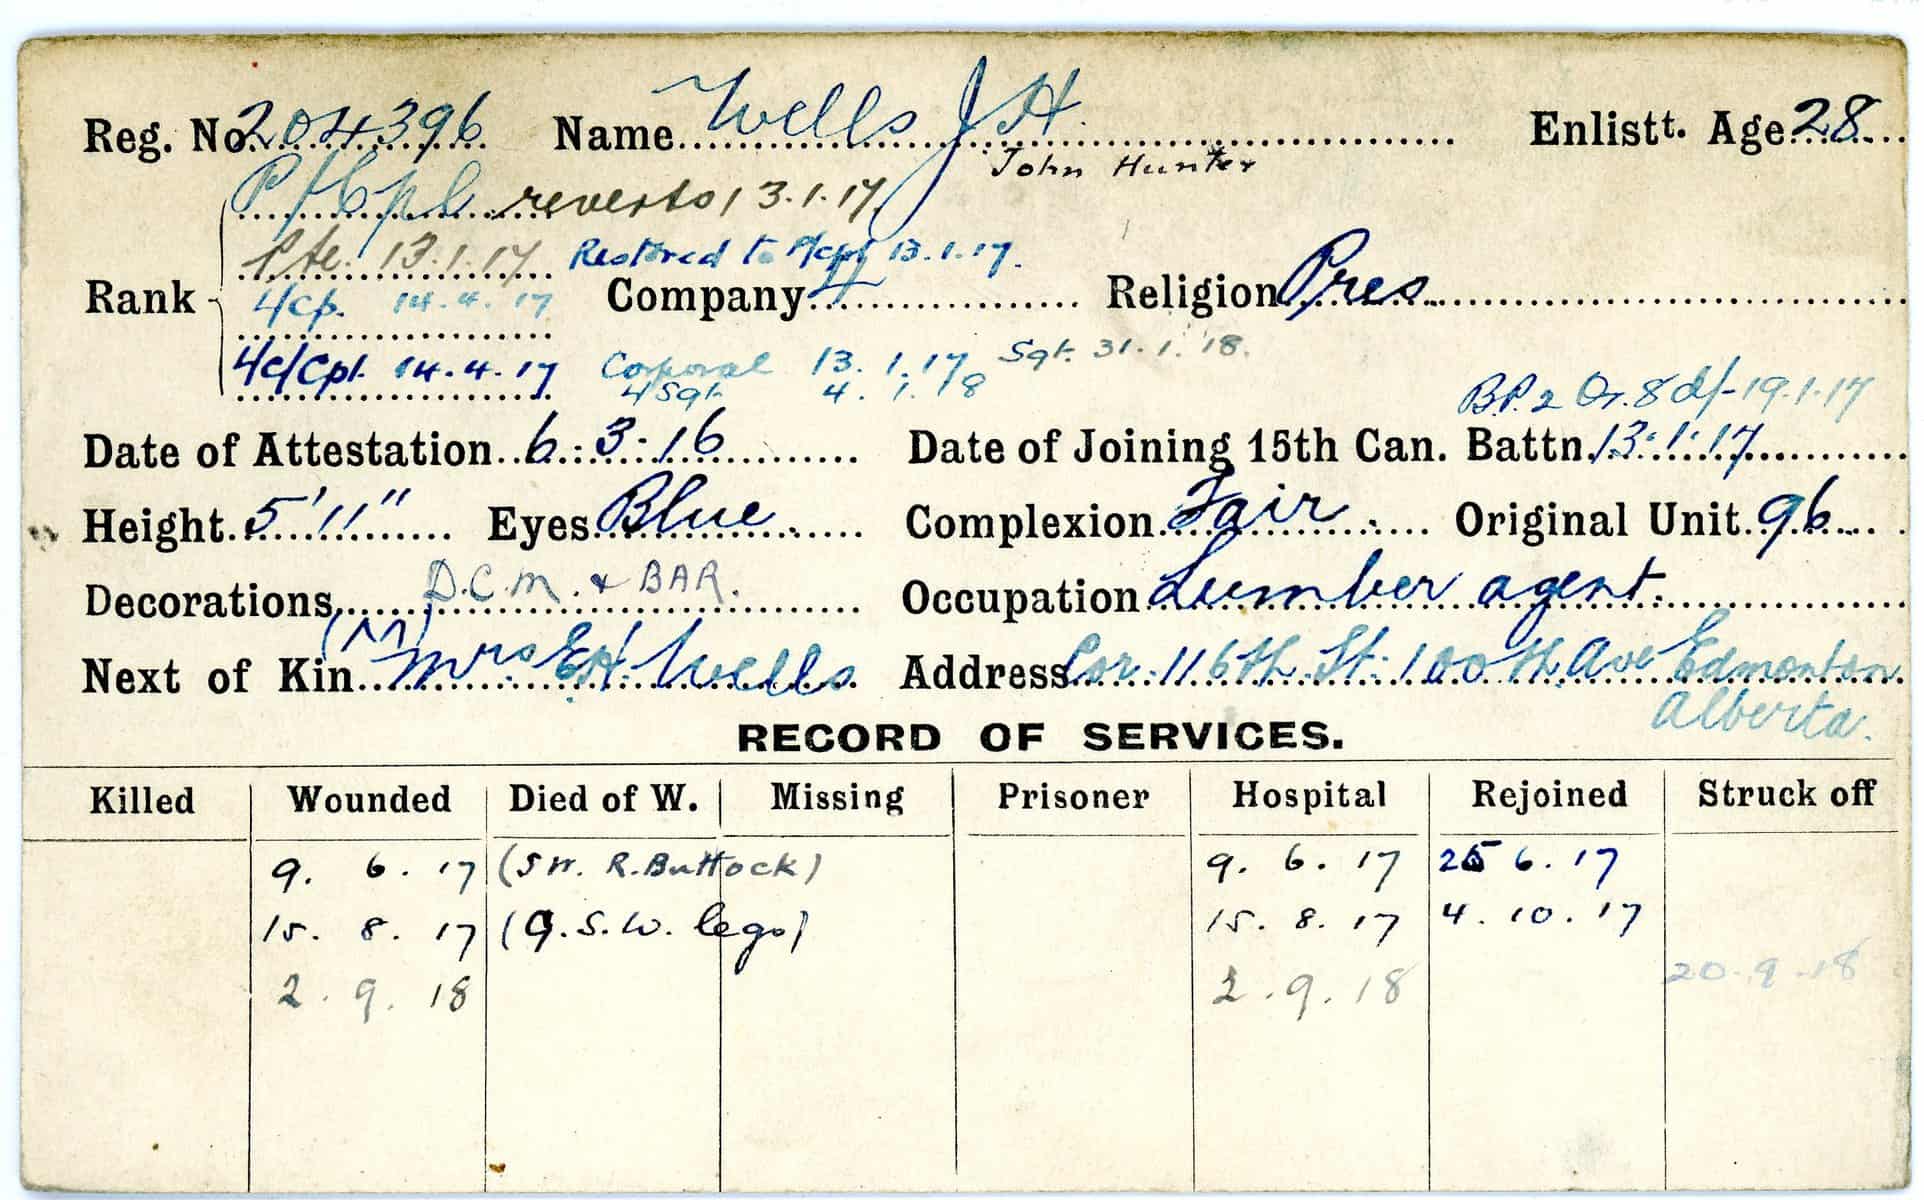 Reg. No. 204396 Name Wells J H. Enlistt. Age 28
John Hunter
P/Cpl reverts 13.1.17
Pte. 13.1.17 Restored to 13.1.17.
Rank L/Cp. 14.4.17 Company 4 Religion Pres
L/Cpl. 14.4.17 Corporal 13.1.17 Sgt. 31.1.18.
L/Sgt 4.1.18
B.P. 2 Or. 8 d/- 19.1.17
Date of Attestation 6:3:16 Date of Joining 15th Can. Battn. 13:1:17
Height 5'11" Eyes Blue Complexion Fair Original Unit 96
Decorations D.C.M. & BAR. Occupation Lumber agent.
(M)
Next of Kin Mrs E.H. Wells Address Cor. 116th St. 100th Ave Edmonton
Alberta.
RECORD OF SERVICES.
Killed Wounded Died of W. Missing Prisoner Hospital Rejoined Struck off
9. 6. 17 (SW. R. Buttock) 9. 6. 17 25 6. 17
15. 8. 17 (G.S.W. legs) 15. 8. 17 4. 10. 17
2. 9. 18 2. 9. 18 20-9-18